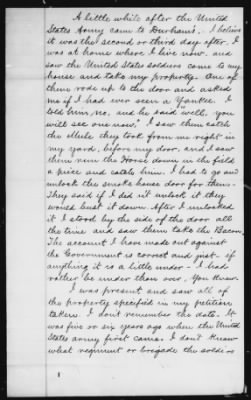 A little while after the United
States Army came to Durham's, I believe
it was the second or third day after. I
was at home where I live now, and
saw the United States soldiers come to my
house and take my property. One of
them rode up to the door and asked
me if I had ever seen a Yankee. I
told him, no, and he said well, you
will see one now. I saw them catch
the Mule they took from me right in
my yard, before my door, and I saw
them run the Horse down in the field
a piece and catch him. I had to go and
unlock the smoke house door for them.
They said if I did not unlock it they
would bust it down. After I unlocked
it I stood by the side of the door all
the time and saw them take the Bacon.
The account I have made out against
the Government is correct and just. if
anything it is a little under. I had
rather be under than over, you know.
I was present and saw all of
the property specified in my petition
taken. I don't remember the date. It
was five or six years ago when the United
States army first came. I don't know
what regiment or brigade the soldiers